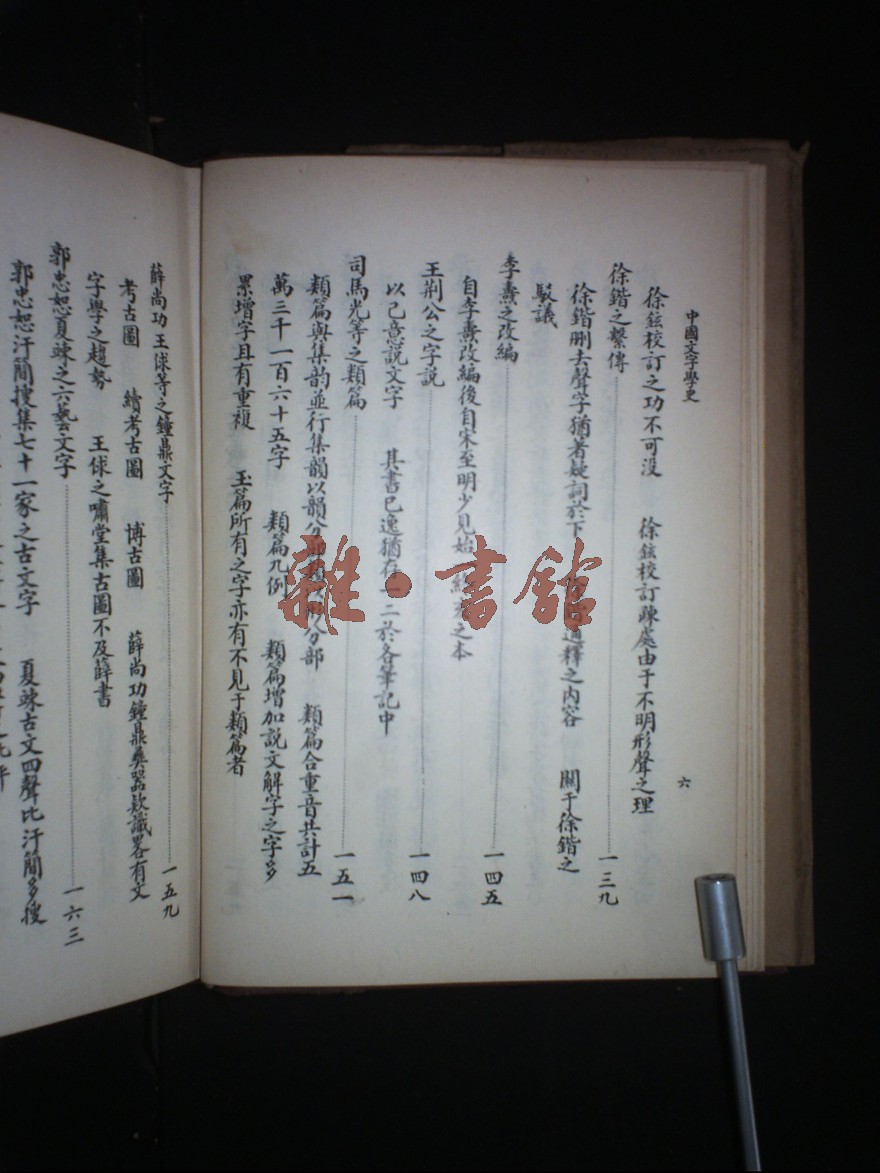 中國文字學史
六
徐鉉校訂之功不可没 徐鉉校訂疎處由于不明形聲之理
徐鍇之繫傳 一三九
徐鍇删去聲字猶著疑詞於下 通釋之内容 關于徐鍇之
駁議
李燾之改編 一四五
自李燾改編後自宋至明少見始 之本
王荆公之字説 一四八
以己意説文字 其書已逸猶存一二於各筆記中
司馬光等之類篇 一五一
類篇與集韵並行集韻以韻分部類 分部 類篇合重音共計五
萬三千一百六十五字 類篇九例 類篇增加説文解字之字多
累增字且有重複 玉篇所有之字亦有不見于類篇者
薛尚功王俅等之鐘鼎文字 一五九
考古圖 續考古圖 博古圖 薛尚功鐘鼎彝器欵識畧有文
字學之趨勢 王俅之嘯堂集古圖不及薛書
郭忠恕夏竦之六藝文字 一六三
郭忠恕汗簡搜集七十一家之古文字 夏竦古文四聲比汗簡多搜
雜·書館